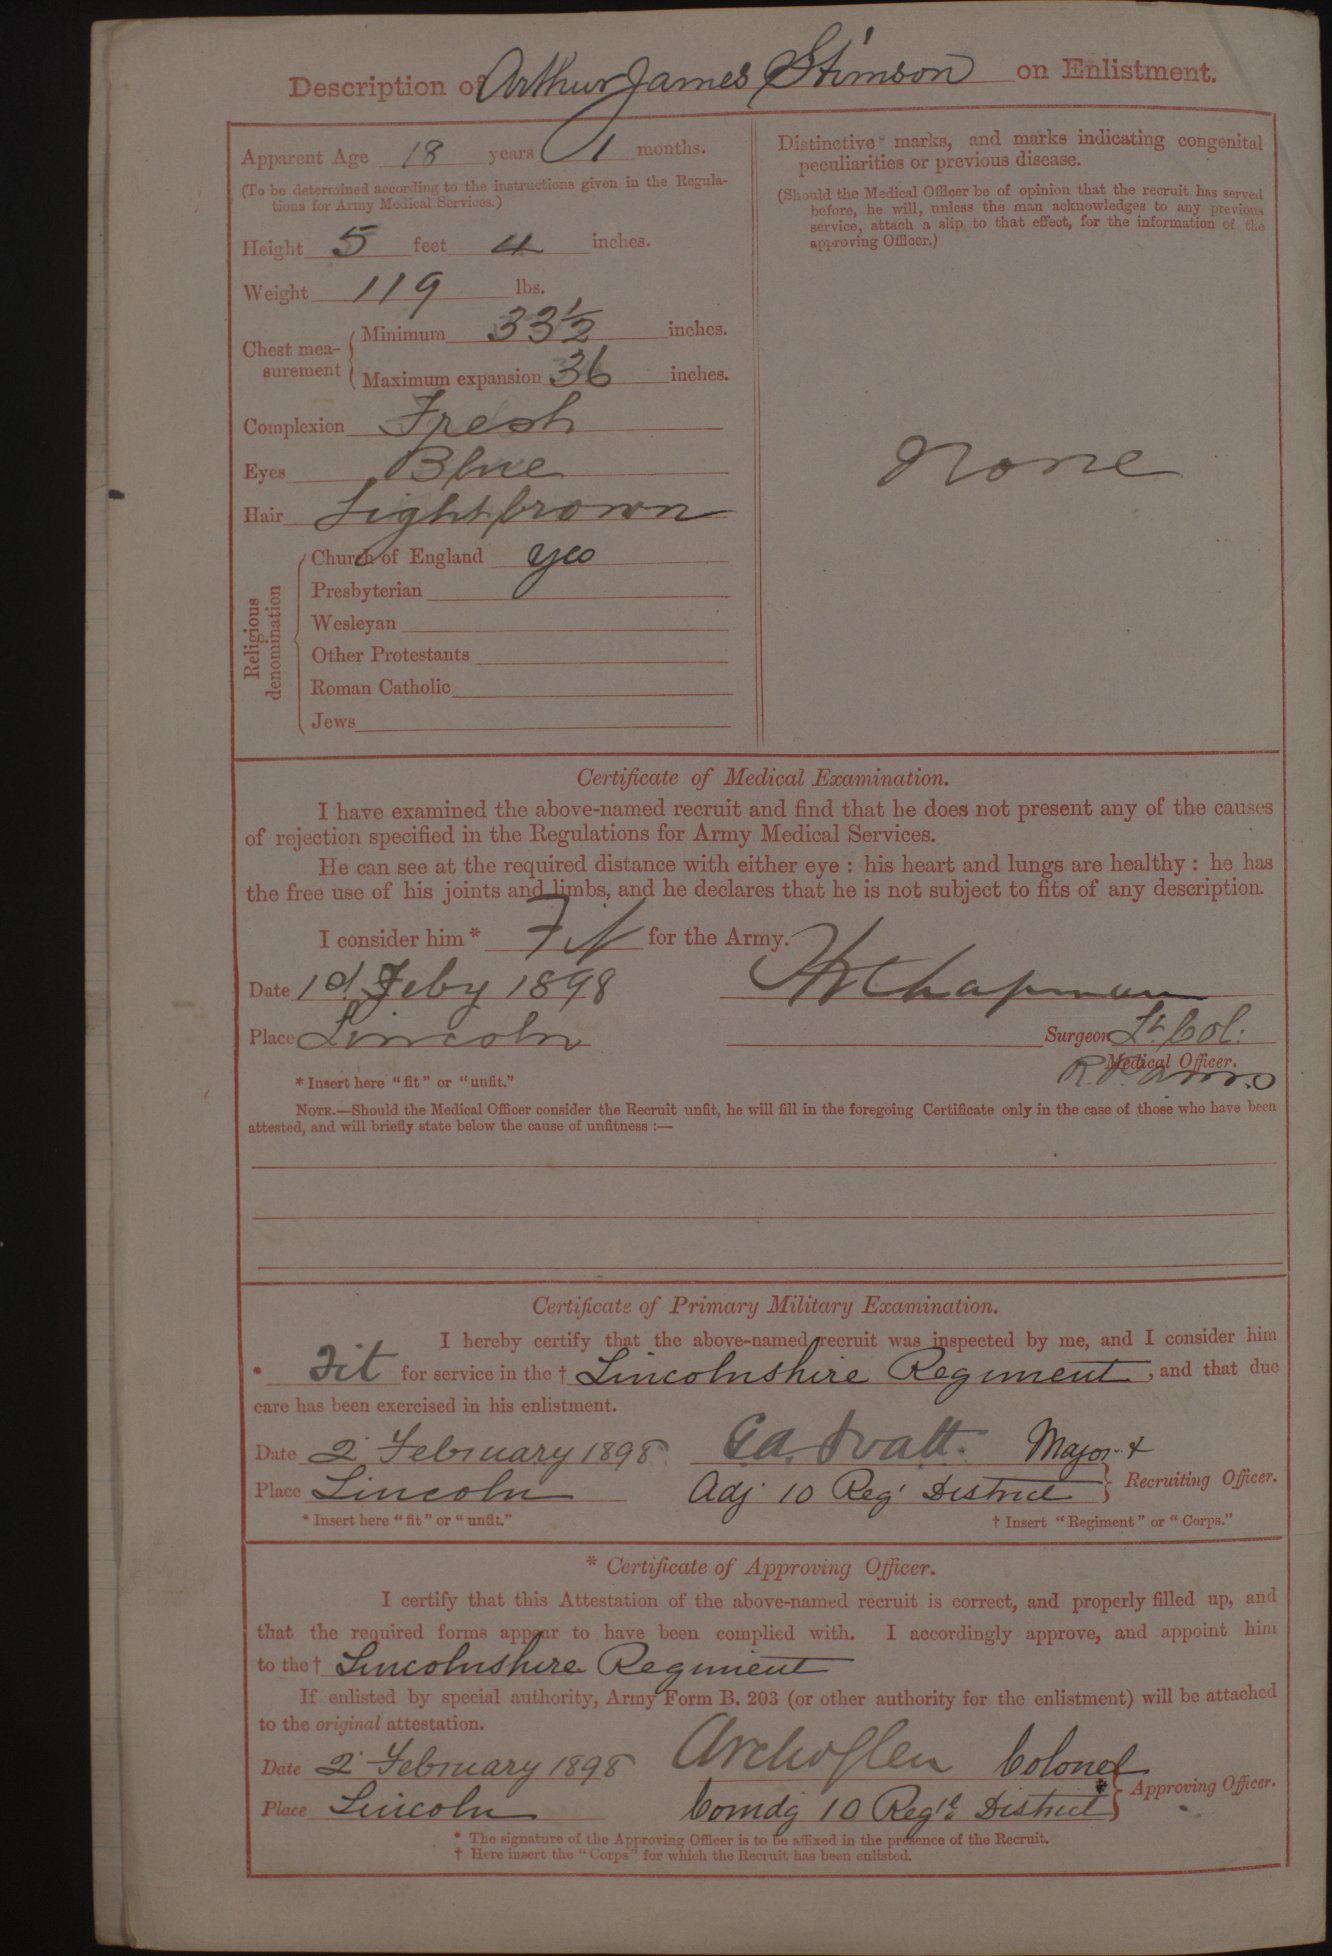 Description of Arthur James Stimson on Enlistment.
Apparent Age 18 years 1 months.
(To be determined according to the instructions given in the Regula-
tions for Army Medical Services.)
Height 5 feet 4 inches.
Weight 119 lbs.
Chest mea-
surement
Minimum 33½ inches.
Maximum expansion 36 inches.
Complexion Fresh
Eyes Blue
Hair Light brown
Religious
denomination
Church of England yes
Presbyterian
Wesleyan
Other Protestants
Roman Catholic
Jews
Distinctive marks, and marks indicating congenital
peculiarities or previous disease.
(Should the Medical Officer be of opinion that the recruit has served
before, he will, unless the man acknowledges to any previous
service, attach a slip to that effect, for the information of the
approving Officer.)
None
Certificate of Medical Examination.
I have examined the above-named recruit and find that he does not present any of the causes
of rejection specified in the Regulations for Army Medical Services.
He can see at the required distance with either eye : his heart and lungs are healthy : he has
the free use of his joints and limbs, and he declares that he is not subject to fits of any description.
I consider him * Fit for the Army.
Date 1st Feby 1898 Chapman
Place Lincoln Surgeon Lt. Col:
Medical Officer.
* Insert here "fit" or "unfit."
NOTE.—Should the Medical Officer consider the Recruit unfit, he will fill in the foregoing Certificate only in the case of those who have been
attested, and will briefly state below the cause of unfitness :—
Certificate of Primary Military Examination.
I hereby certify that the above-named recruit was inspected by me, and I consider him
* Fit for service in the † Lincolnshire Regiment, and that due
care has been exercised in his enlistment.
Date 2 February 1898 Major &
Place Lincoln Adj 10 Reg' District Recruiting Officer.
* Insert here "fit" or "unfit." † Insert "Regiment" or "Corps."
* Certificate of Approving Officer.
I certify that this Attestation of the above-named recruit is correct, and properly filled up, and
that the required forms appear to have been complied with. I accordingly approve, and appoint him
to the † Lincolnshire Regiment
If enlisted by special authority, Army Form B. 203 (or other authority for the enlistment) will be attached
to the original attestation.
Date 2 February 1898 Colonel
Place Lincoln Comdg 10 Reg'l District Approving Officer.
* The signature of the Approving Officer is to be affixed in the presence of the Recruit.
† Here insert the "Corps" for which the Recruit has been enlisted.